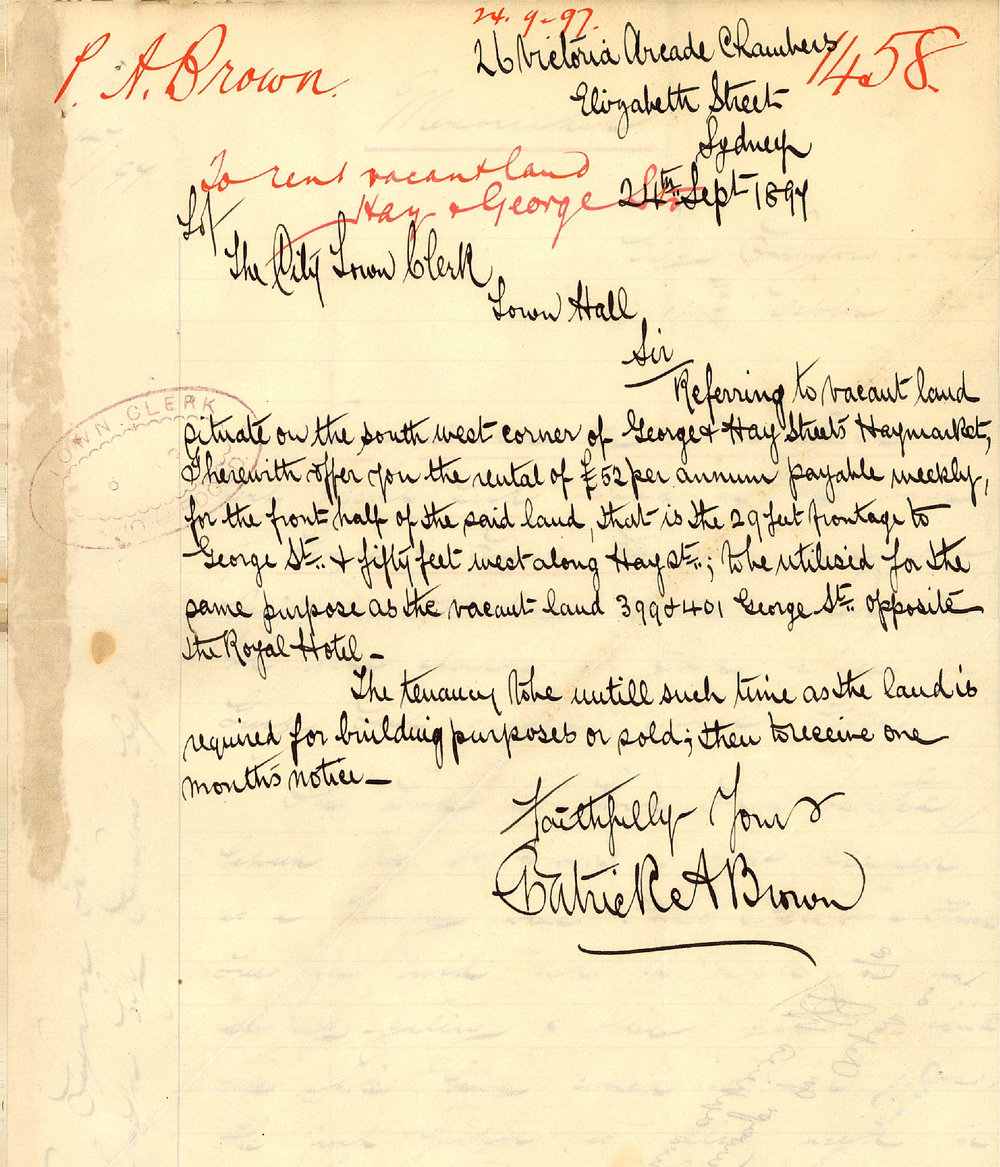 24.9.97.
P. A. Brown.
1458.
26 Victoria Arcade Chambers
Elizabeth Street
Sydney
To rent vacant land
Hay & George Sts
24th Sept 1897
To/
The City Town Clerk
Town Hall
Sir
Referring to vacant land
situate on the south west corner of George & Hay Streets Haymarket,
I herewith offer you the rental of £52 per annum payable weekly,
for the front half of the said land, that is the 29 feet frontage to
George St. & fifty feet west along Hay St.; to be utilised for the
same purpose as the vacant land 399 & 401 George St. opposite
the Royal Hotel –
The tenancy to be untill such time as the land is
required for building purposes or sold; then to receive one
months notice –
Faithfully Yours
Patrick A Brown
TOWN CLERK